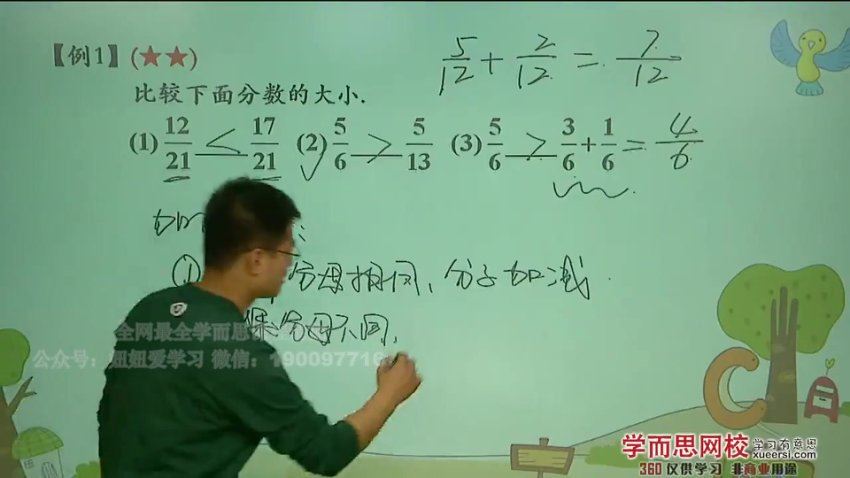 【例1】(★★)
5/12 + 2/12 = 7/12
比较下面分数的大小.
(1) 12/21 < 17/21 (2) 5/6 > 5/13 (3) 5/6 > 3/6 + 1/6 = 4/6
加
① 分母相同, 分子加减.
分母不同,
全网最全学而思
公众号: 妞妞爱学习 微信: 190097716
学而思网校 学习有意思
xueersi.com
360 仅供学习 非商业用途